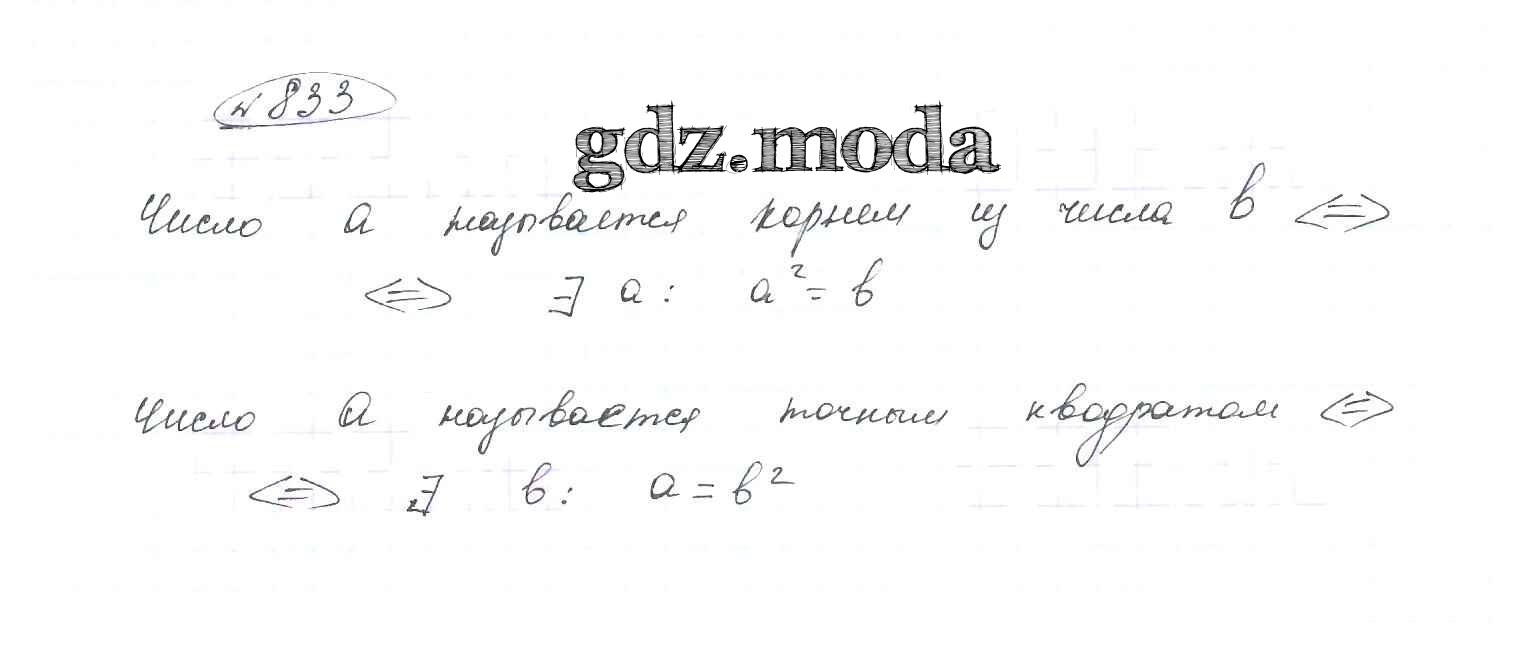 № 833
gdz.moda
Число a называется корнем из числа b ⇔
⇔ ∃ a : a² = b
Число a называется точным квадратом ⇔
⇔ ∃ b : a = b²